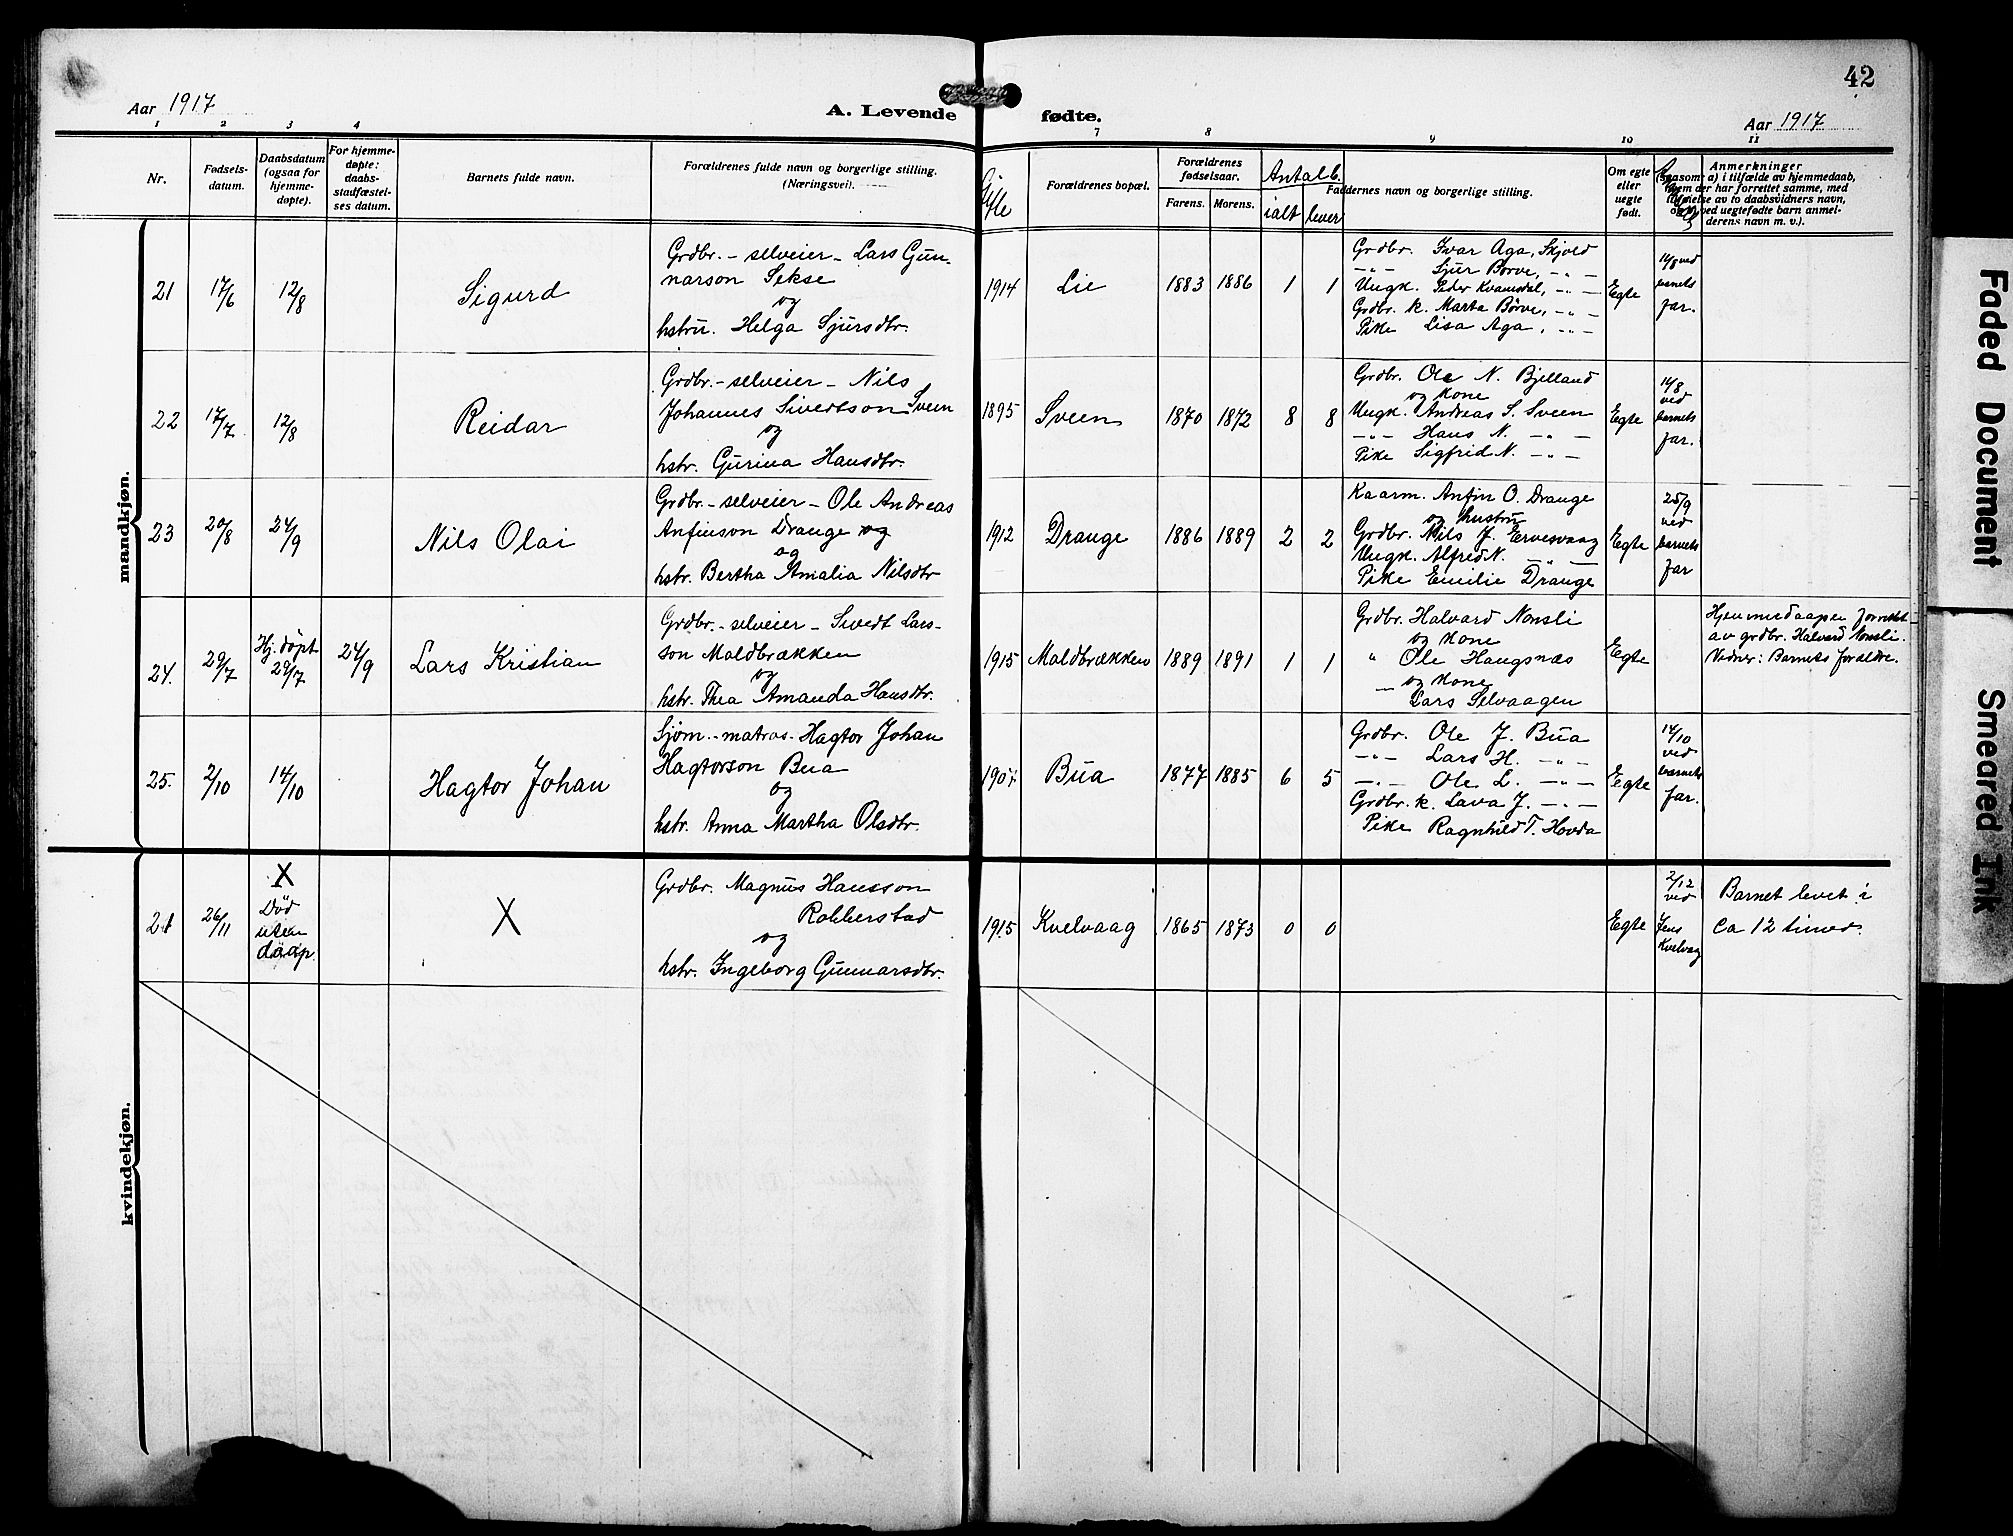 42
Aar 1917
A. Levende fødte.
Aar 1917
1 2 3 4 7 8 9 10 11
Nr.
Fødsels-
datum.
Daabsdatum
(ogsaa for
hjemme-
døpte).
For hjemme-
døpte:
daabs-
stadfæstel-
ses datum.
Barnets fulde navn.
Forældrenes fulde navn og borgerlige stilling.
(Næringsvei).
Gifte
Forældrenes bopæl.
Forældrenes
fødselsaar.
Farens. Morens.
Antal b.
ialt lever
Faddernes navn og borgerlige stilling.
Om egte
eller
uegte
født.
Anmerkninger
(saasom: a) i tilfælde av hjemmedaab,
hvem der har forrettet samme, med
tilføielse av to daabsvidners navn,
ved uegtefødte barn anmel-
derens navn m. v.).
mandkjøn.
21 17/6 12/8 Sigurd
Grdbr. - selveier - Lars Gun-
narson Sekse
og
hstru. Helga Sjursdtr.
1914 Lie 1883 1886 1 1
Grdbr. Ivar Aga, Skjold
-"- Sjur Børve, -"-
Ungk. Peder Kvamsdal, -"-
Grdbr. k. Marta Børve, -"-
Pike Lisa Aga, -"-
Egte
14/8 ved
barnets
far.
22 17/7 12/8 Reidar
Grdbr. - selveier - Nils
Johannes Sivertson Sveen
og
hstr. Gurina Hansdtr.
1895 Sveen 1870 1872 8 8
Grdbr. Ole N. Bjelland
og Kone
Ungk. Andreas S. Sveen
-"- Hans N. -"-
Pike Sigfrid N. -"-
Egte
14/8
ved
barnets
far.
23 20/8 24/9 Nils Olai
Grdbr. - selveier - Ole Andreas
Anfinson Drange og
og
hstr. Bertha Amalia Nilsdtr
1912 Drange 1886 1889 2 2
Kaarm. Anfin O. Drange
og hustru
Grdbr. Nils J. Ervesvaag
Ungk. Alfred N. -"-
Pike Emilie Drange
Egte
25/9
ved
barnets
far
24. 29/7
Hj. døpt
29/7
24/9 Lars Kristian
Grdbr. - selveier - Sivert Lars-
son Maldbrækken
og
hstr. Thea Amanda Hansdtr.
1915 Maldbrækken 1889 1891 1 1
Grdbr. Halvard Nonsli
og Kone
" Ole Haugsnæs
og Kone
Lars Selvaagen
Egte
Hjemmedaapen forrettet
av grdbr. Halvard Nonsli.
Vidner: Barnets forældre.
25. 2/10 14/10 Hagtor Johan
Sjøm. - matros - Hagtor Johan
Hagtorson Bua
og
hstr. Anna Martha Olsdtr.
1907 Bua 1877 1885 6 5
Grdbr. Ole J. Bua
-"- Lars H. -"-
-"- Ole L. -"-
Grdbr. k. Lava J. -"-
Pike Ragnhild T. Hovda
Egte
14/10
ved
barnets
far.
kvindekjøn.
21 26/11
X
Død
uten
daap.
X
Grdbr. Magnus Hansson
Robberstad
og
hstr. Ingeborg Gunnarsdtr.
1915 Kvelvaag 1865 1873 0 0
Egte
2/12
ved
Jens
Kvelvag
Barnet levet i
ca 12 timer.
Faded Document
Smeared Ink